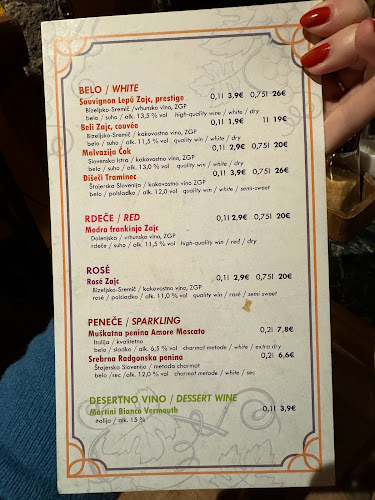 BELO / WHITE
Sauvignon Lepú Zajc, prestige 0,1l 3,9€ 0,75l 26€
Bizeljsko-Sremič /vrhunsko vino, ZGP
belo / suho / alk. 13,5 % vol high-quality wine / white / dry
Beli Zajc, couvée 0,1l 1,9€ 1l 19€
Bizeljsko-Sremič / kakovostno vino, ZGP
belo / suho / alk. 11,5 % vol quality wine / white / dry
Malvazija Čok 0,1l 2,9€ 0,75l 20€
Slovenska Istra / kakovostno vino, ZGP
belo / suho / alk. 13,0 % vol quality win / white / dry
Dišeči Traminec 0,1l 3,9€ 0,75l 26€
Štajerska Slovenija / kakovostno vino, ZGP
belo / polsladko / alk. 12,0 vol quality win / white / semi-sweet
RDEČE / RED
Modra frankinja Zajc 0,1l 2,9€ 0,75l 20€
Dolenjska /vrhunsko vino, ZGP
rdeče / suho / alk. 11,5 % vol high-quality win / red / dry
ROSÉ
Rosé Zajc 0,1l 2,9€ 0,75l 20€
Bizeljsko-Sremič / kakovostno vino, ZGP
rosé / polsladko / alk. 11,0 vol quality win / rosé / semi sweet
PENEČE / SPARKLING
Muškatna penina Amore Moscato 0,2l 7,8€
Italija / kvalitetno
belo / sladko / alk. 6,5 % vol charmat metode / white / extra dry
Srebrna Radgonska penina 0,2l 6,6€
Štajerska Slovenija / metoda charmat
belo /sec /alk. 12,0 % vol charmat metode / white / sec
DESERTNO VINO / DESSERT WINE
Martini Bianco Vermouth 0,1l 3,9€
italija / alk. 15 %